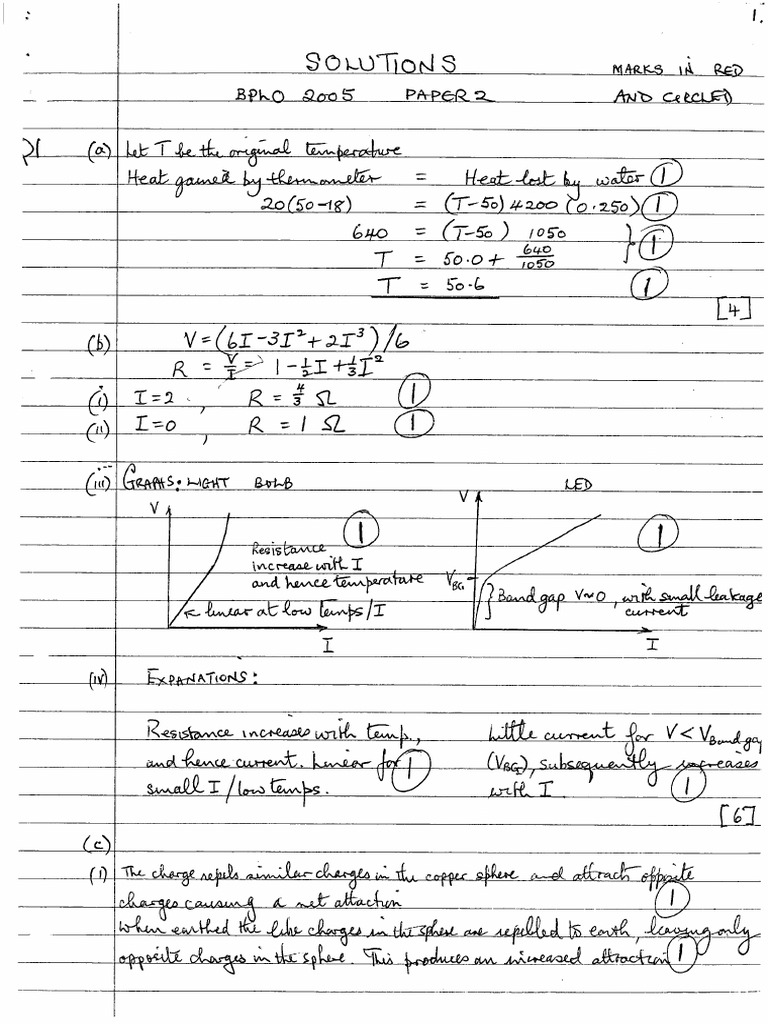 1.
SOLUTIONS
MARKS IN RED
BPhO 2005 PAPER 2
AND CIRCLED
Q1 (a) Let T be the original temperature
Heat gained by thermometer = Heat lost by water 1
20(50-18) = (T-50) 4200 (0.250) 1
640 = (T-50) 1050
T = 50.0 + 640/1050 1
T = 50.6 1
[4]
(b) V = (6I - 3I² + 2I³)/6
R = V/I = 1 - ½I + ⅓I²
(i) I = 2 , R = 4/3 Ω 1
(ii) I = 0 , R = 1 Ω 1
(iii) GRAPHS: LIGHT BULB LED
V 1 Resistance
increase with I
and hence temperature
← linear at low temps/I
I
V 1
V_BG } Band gap V~0, with small leakage
current
I
(iv) EXPANATIONS:
Resistance increases with temp.,
and hence current. Linear for 1
small I/low temps.
Little current for V < V_Band gap
(V_BG), subsequently increases
with I. 1
[6]
(c)
(i) The charge repels similar charges in the copper sphere and attracts opposite
charges causing a net attaction 1
When earthed the like charges in the sphere are repelled to earth, leaving only
opposite charges in the sphere. This produces an increased attraction 1